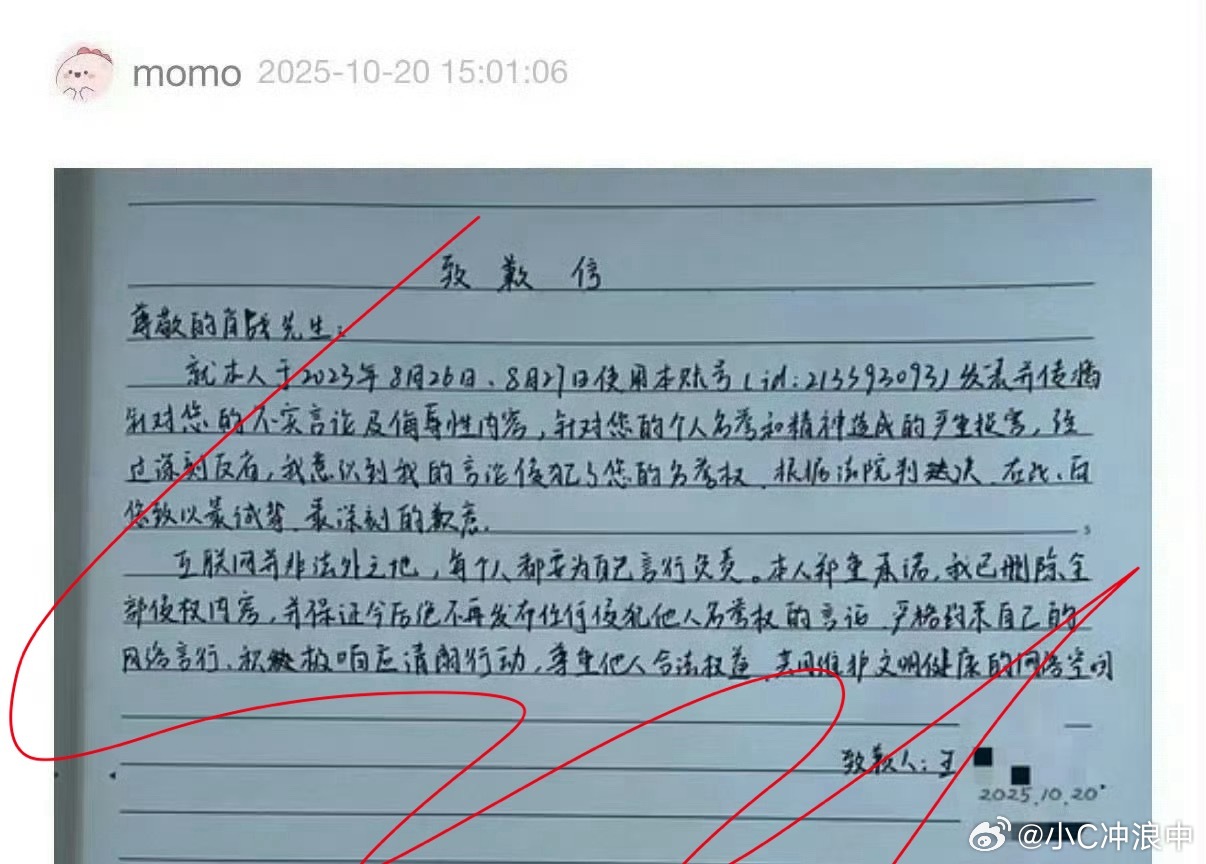 momo 2025-10-20 15:01:06
致歉信
尊敬的肖战先生：
就本人于2023年8月26日、8月27日使用本账号(id:213593093)发表并传播
针对您的不实言论及侮辱性内容，针对您的个人名誉和精神造成的严重损害，经
过深刻反省，我意识到我的言论侵犯了您的名誉权、根据法院判决、在此、向
您致以最诚挚、最深刻的歉意。
互联网并非法外之地，每个人都要为自己言行负责。本人郑重承诺，我已删除全
部侵权内容，并保证今后绝不再发布任何侵犯他人名誉权的言论、严格约束自己的
网络言行、积极响应清朗行动，尊重他人合法权益、共同维护文明健康的网络空间
致歉人：王
2025.10.20.
@小C冲浪中